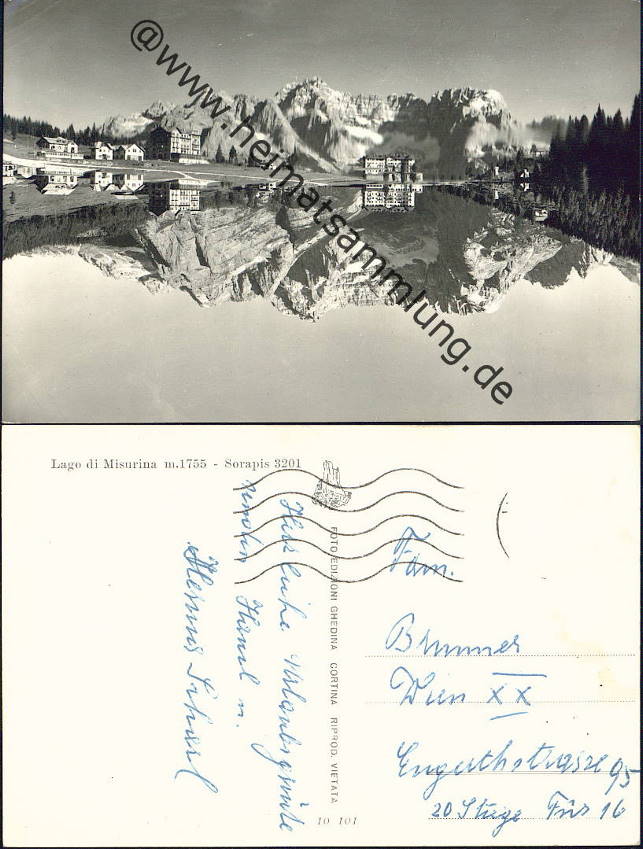 @www.heimatsammlung.de
Lago di Misurina m.1755 - Sorapis 3201
FOTO EDIZIONI GHEDINA CORTINA RIPROD. VIETATA
10 101
Herzliche Urlaubsgrüße
Hansl u.
Fam.
Brunner
Wien XX
Engerthstrasse 95
20 Stiege Tür 16